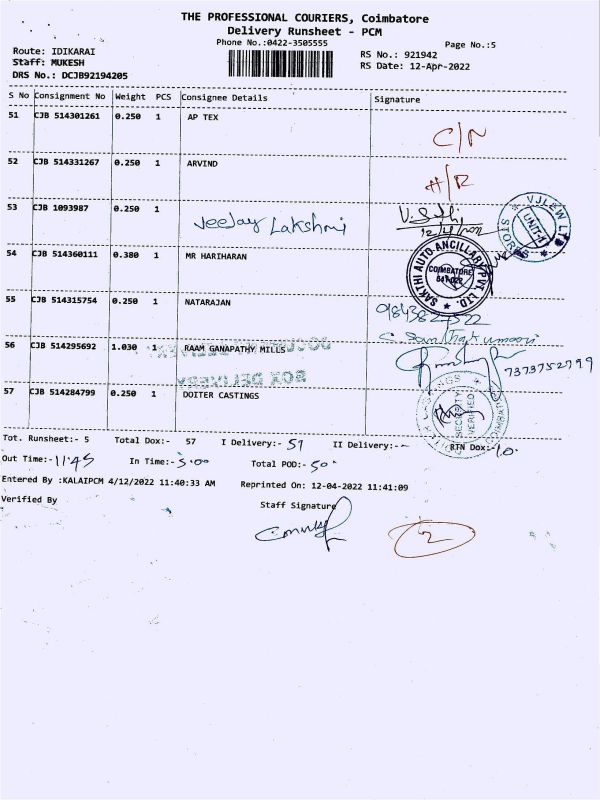 THE PROFESSIONAL COURIERS, Coimbatore
Delivery Runsheet - PCM
Phone No.:0422-3505555
Page No.:5
Route: IDIKARAI
Staff: MUKESH
DRS No.: DCJB92194205
RS No.: 921942
RS Date: 12-Apr-2022
S No Consignment No Weight PCS Consignee Details Signature
51 CJB 514301261 0.250 1 AP TEX C/N
52 CJB 514331267 0.250 1 ARVIND H/R
53 CJB 1093987 0.250 1 Jeejay Lakshmi
VJLEW LTD
STORES
UNIT-1
54 CJB 514360111 0.380 1 MR HARIHARAN
SAKTHI AUTO ANCILLARY PVT. LTD.
COIMBATORE
641 022
55 CJB 514315754 0.250 1 NATARAJAN
56 CJB 514295692 1.030 1 RAAM GANAPATHY MILLS
BOX DELIVERY
7373752799
57 CJB 514284799 0.250 1 DOITER CASTINGS
SECURITY
VERIFIED
Tot. Runsheet:- 5 Total Dox:- 57 I Delivery:- 57 II Delivery:- - RTN Dox:- 10
Out Time:- 11.45 In Time:- 5.00 Total POD:- 50
Entered By :KALAIPCM 4/12/2022 11:40:33 AM Reprinted On: 12-04-2022 11:41:09
Verified By
Staff Signature
2